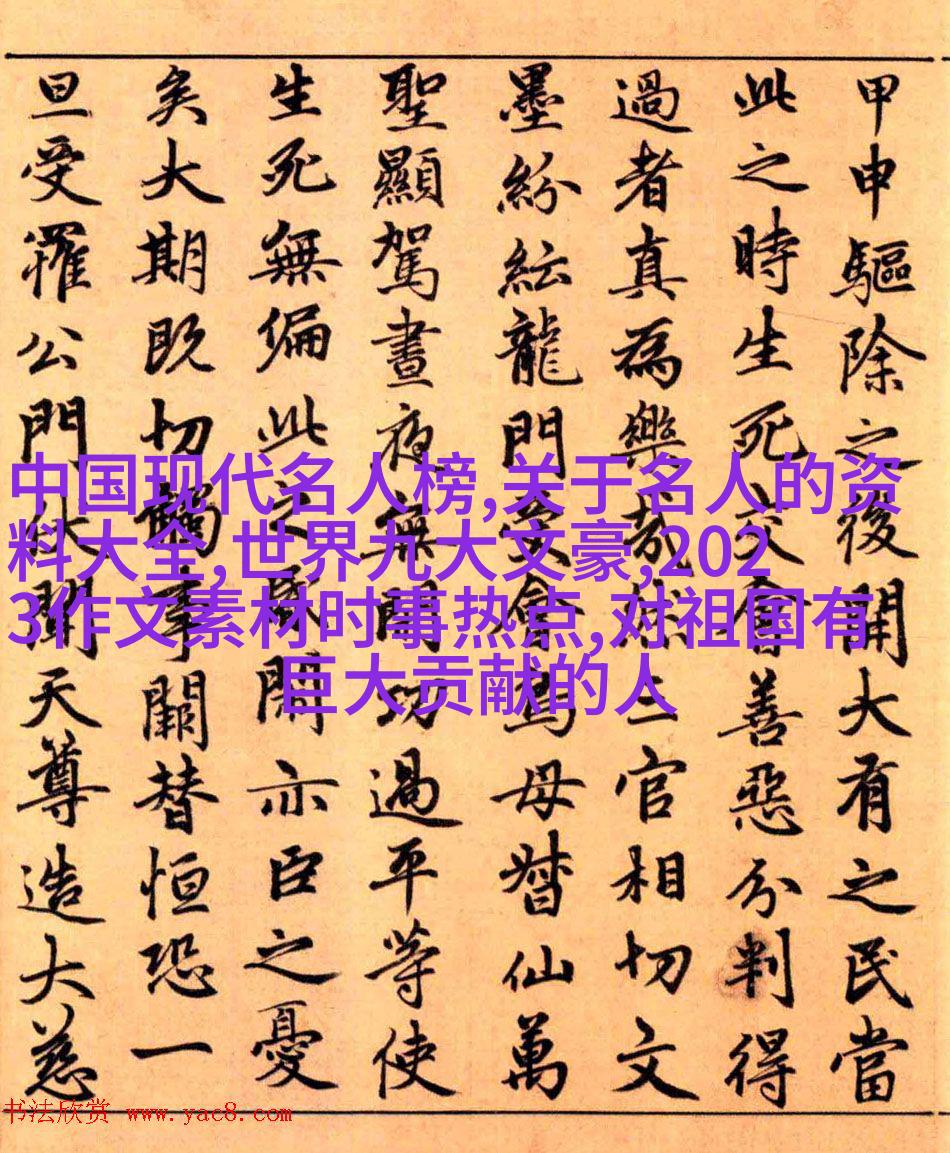 甲申驅除之後開大有之民當
此之時生死交會善惡分判得
過者真為樂哉然三官相切文
墨紛紜龍門受會鳥母督仙萬
聖顯駕晝夜無閒功過平等使
生死無偏此之關亦臣之憂
矣大期既切觸事闕替恒恐一
旦受罹公門伏聞天尊造大慈
中国现代名人榜,关于名人的资
料大全,世界九大文豪,202
3作文素材时事热点,对祖国有
巨大贡献的人
书法欣赏 www.yac8.com